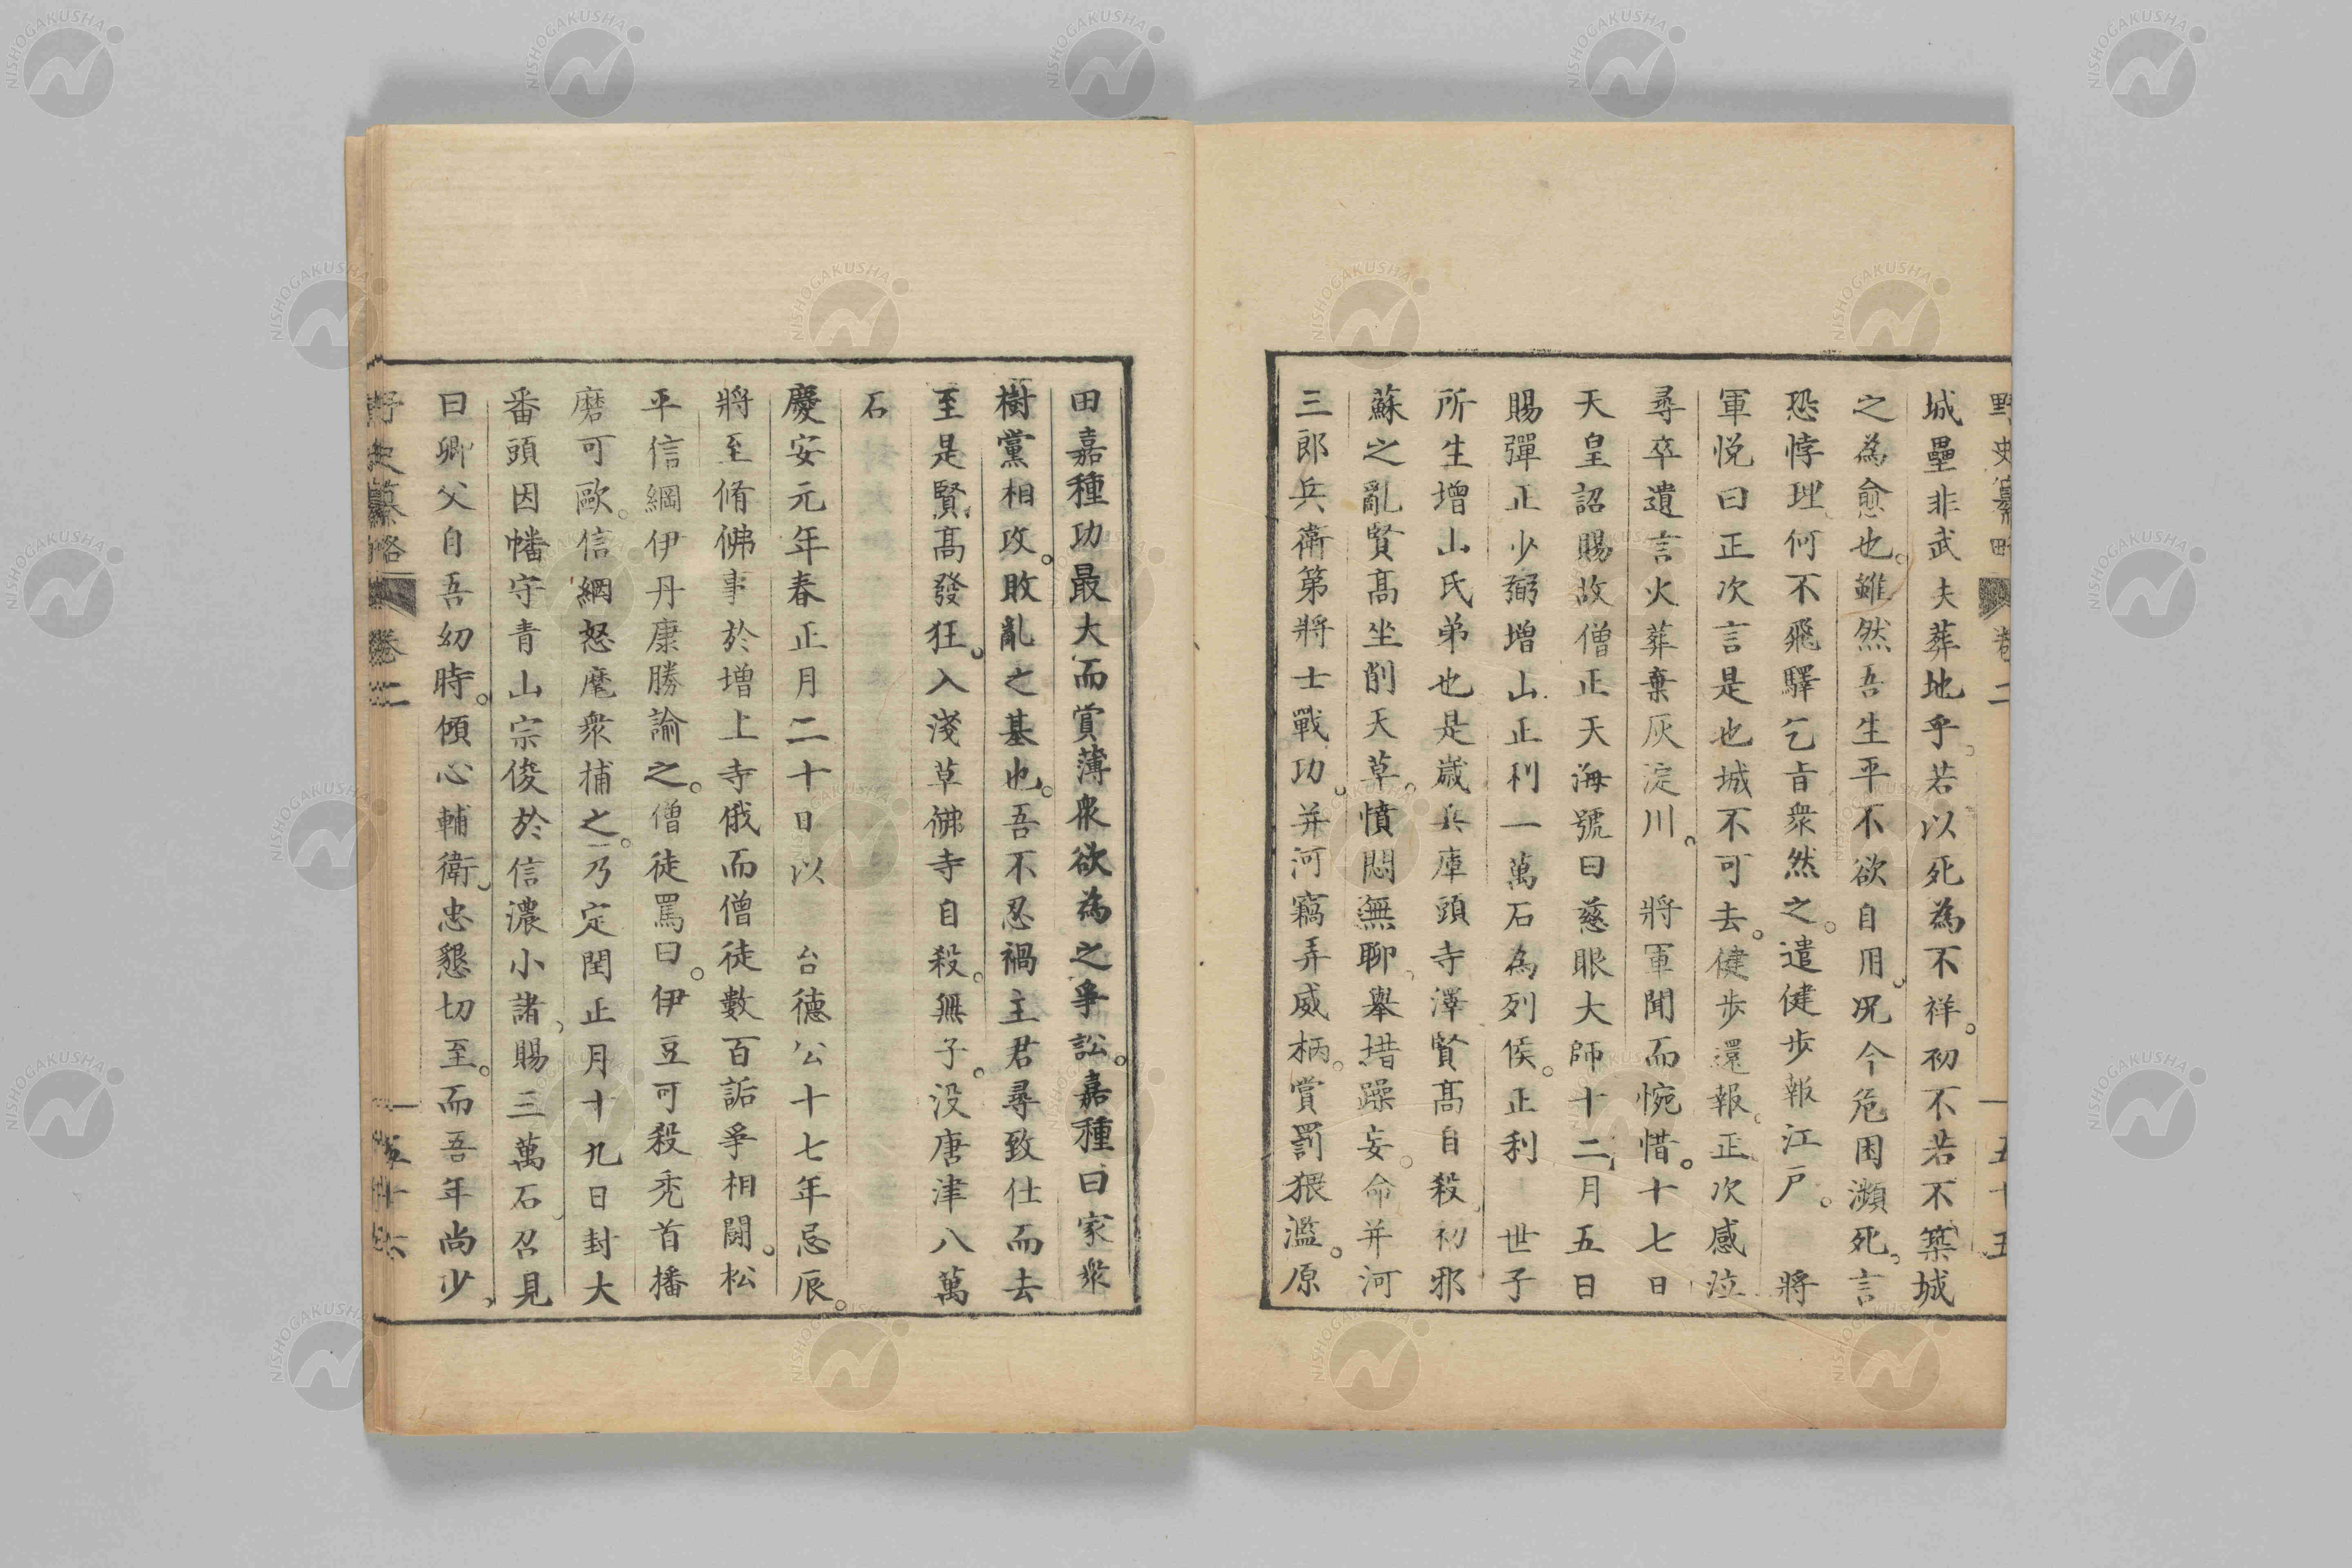 野史纂略 卷二 五十五
城壘非武夫葬地乎。若以死為不祥。初不若不築城
之為愈也。雖然吾生平不欲自用。况今危困瀕死。言
恐悖理。何不飛驛乞旨衆然之。遣健步報江戸。將
軍悦曰正次言是也城不可去。健步還報。正次感泣
尋卒遺言火葬棄灰淀川。將軍聞而惋惜。十七日
天皇詔賜故僧正天海號曰慈眼大師十二月五日
賜彈正少弼増山正利一萬石為列侯。正利世子
所生增山氏弟也是歳兵庫頭寺澤賢髙自殺。初邪
蘇之亂賢髙坐削天草。憤悶無聊。舉措躁妄。命并河
三郎兵衛第將士戰功。并河竊弄威柄。賞罰猥濫。原
田嘉種功最大而賞薄衆欲為之爭訟。嘉種曰家衆
樹黨相攻。敗亂之基也。吾不忍禍主君尋致仕而去
至是賢髙發狂。入淺草佛寺自殺。無子。没唐津八萬
石
慶安元年春正月二十日以台德公十七年忌辰。
將至脩佛事於增上寺俄而僧徒數百詬爭相鬪。松
平信綱伊丹康勝諭之。僧徒罵曰。伊豆可殺禿首播
磨可歐。信綱怒麾衆捕之。乃定閏正月十九日封大
番頭因幡守青山宗俊於信濃小諸。賜三萬石。召見
曰卿父自吾幼時。傾心輔衛。忠懇切至。而吾年尚少。
野史纂略 卷二 五十六
NISHOGAKUSHA